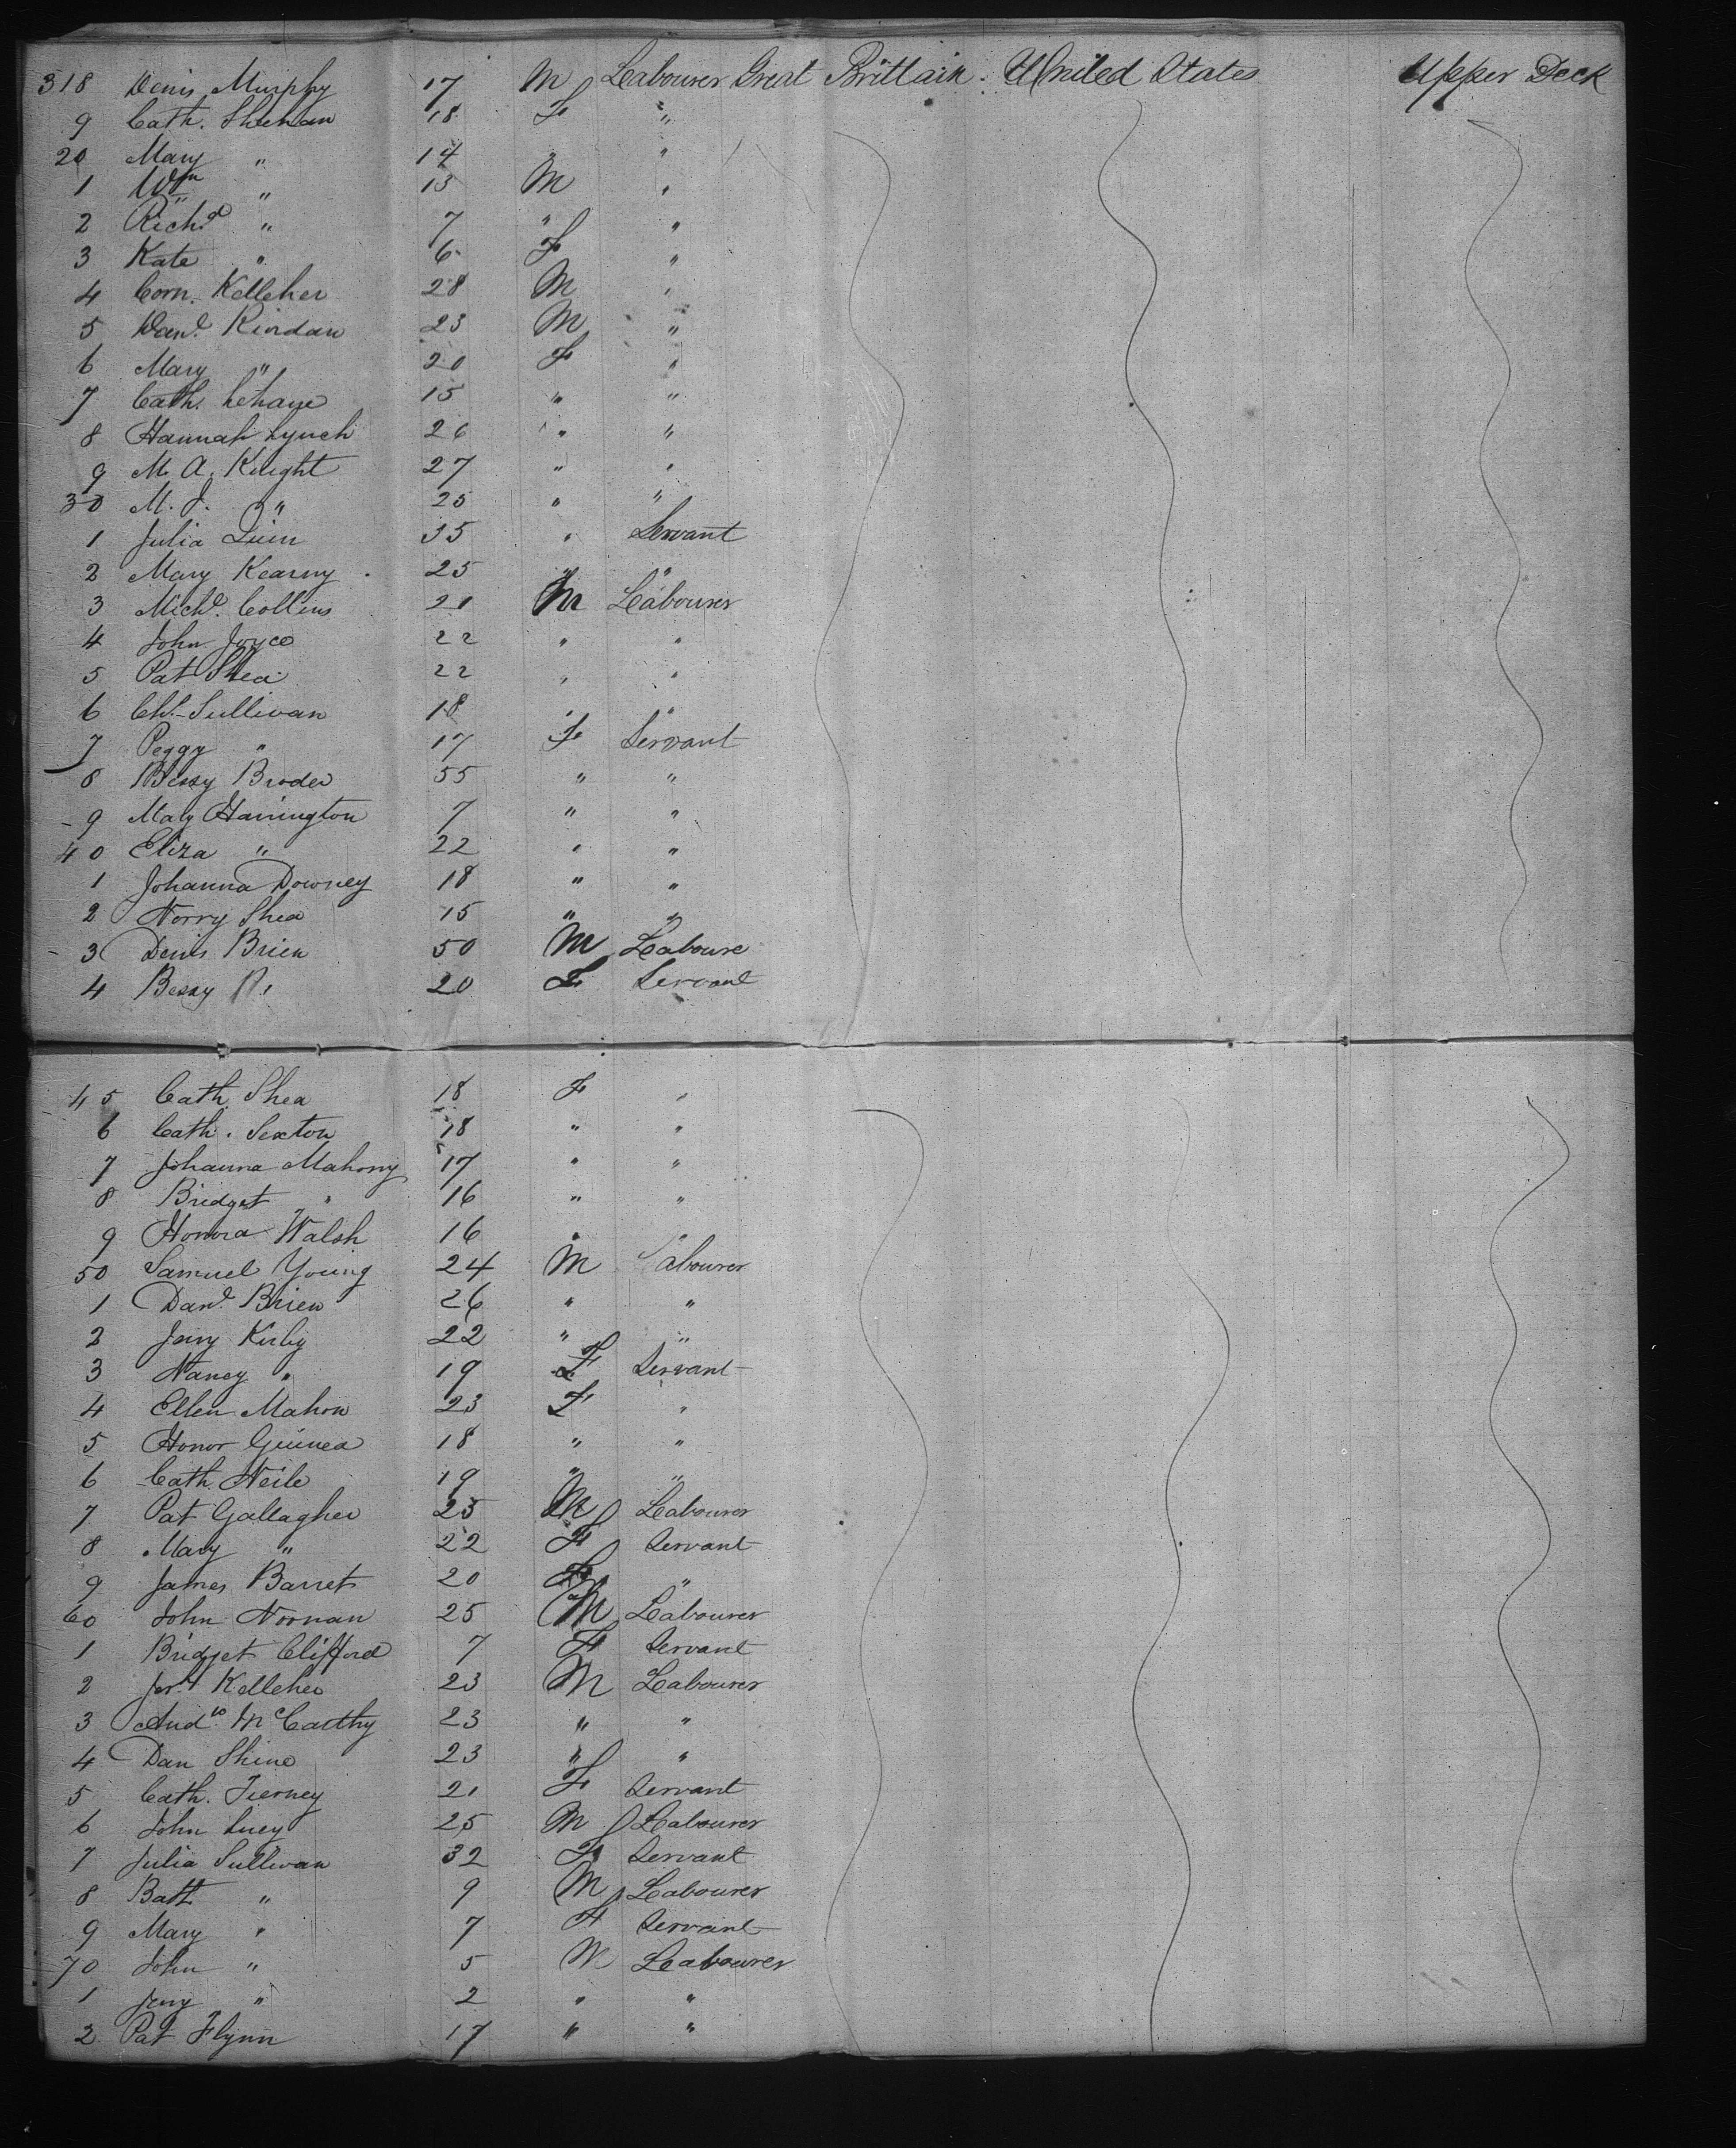 318 Denis Murphy 17 M Labourer Great Brittain. United States Upper Deck
9 Cath. Sheehan 18 F "
20 Mary " 14 " "
1 Wm " 13 M "
2 Richd " 7 " "
3 Kate " 6 F "
4 Corn. Kelleher 28 M "
5 Danl Riordan 23 M "
6 Mary " 20 F "
7 Cath. Lehane 15 " "
8 Hannah Lynch 26 " "
9 M. A. Knight 27 " "
30 M. J. " 25 " "
1 Julia Quin 35 " Servant
2 Mary Kearny 25 " "
3 Michl Collins 21 M Labourer
4 John Joyce 22 " "
5 Pat Shea 22 " "
6 Chs. Sullivan 18 " "
7 Peggy " 17 F Servant
8 Bessy Broder 55 " "
9 Mary Harrington 7 " "
40 Eliza " 22 " "
1 Johanna Downey 18 " "
2 Norry Shea 15 " "
3 Denis Brien 50 M Laboure
4 Bessy 20 F Servant
45 Cath. Shea 18 F "
6 Cath. Sexton 18 " "
7 Johanna Mahony 17 " "
8 Bridget " 16 " "
9 Honora Walsh 16 " "
50 Samuel Young 24 M Labourer
1 Danl Brien 26 " "
2 Jerry Kirby 22 " "
3 Nancy " 19 F Servant
4 Ellen Mahon 23 F "
5 Honor Guinea 18 " "
6 Cath. Neile 19 " "
7 Pat Gallagher 25 M Labourer
8 Mary " 22 F Servant
9 James Barret 20 "
60 John Noonan 25 M Labourer
1 Bridget Clifford 7 F Servant
2 Jerh Kelleher 23 M Labourer
3 Andw McCarthy 23 " "
4 Dan Shine 23 " "
5 Cath. Tierney 21 F Servant
6 John Lucy 25 M Labourer
7 Julia Sullivan 32 F Servant
8 Batt " 9 M Labourer
9 Mary " 7 F Servant
70 John " 5 M Labourer
1 Jerry " 2 " "
2 Pat Flynn 17 " "